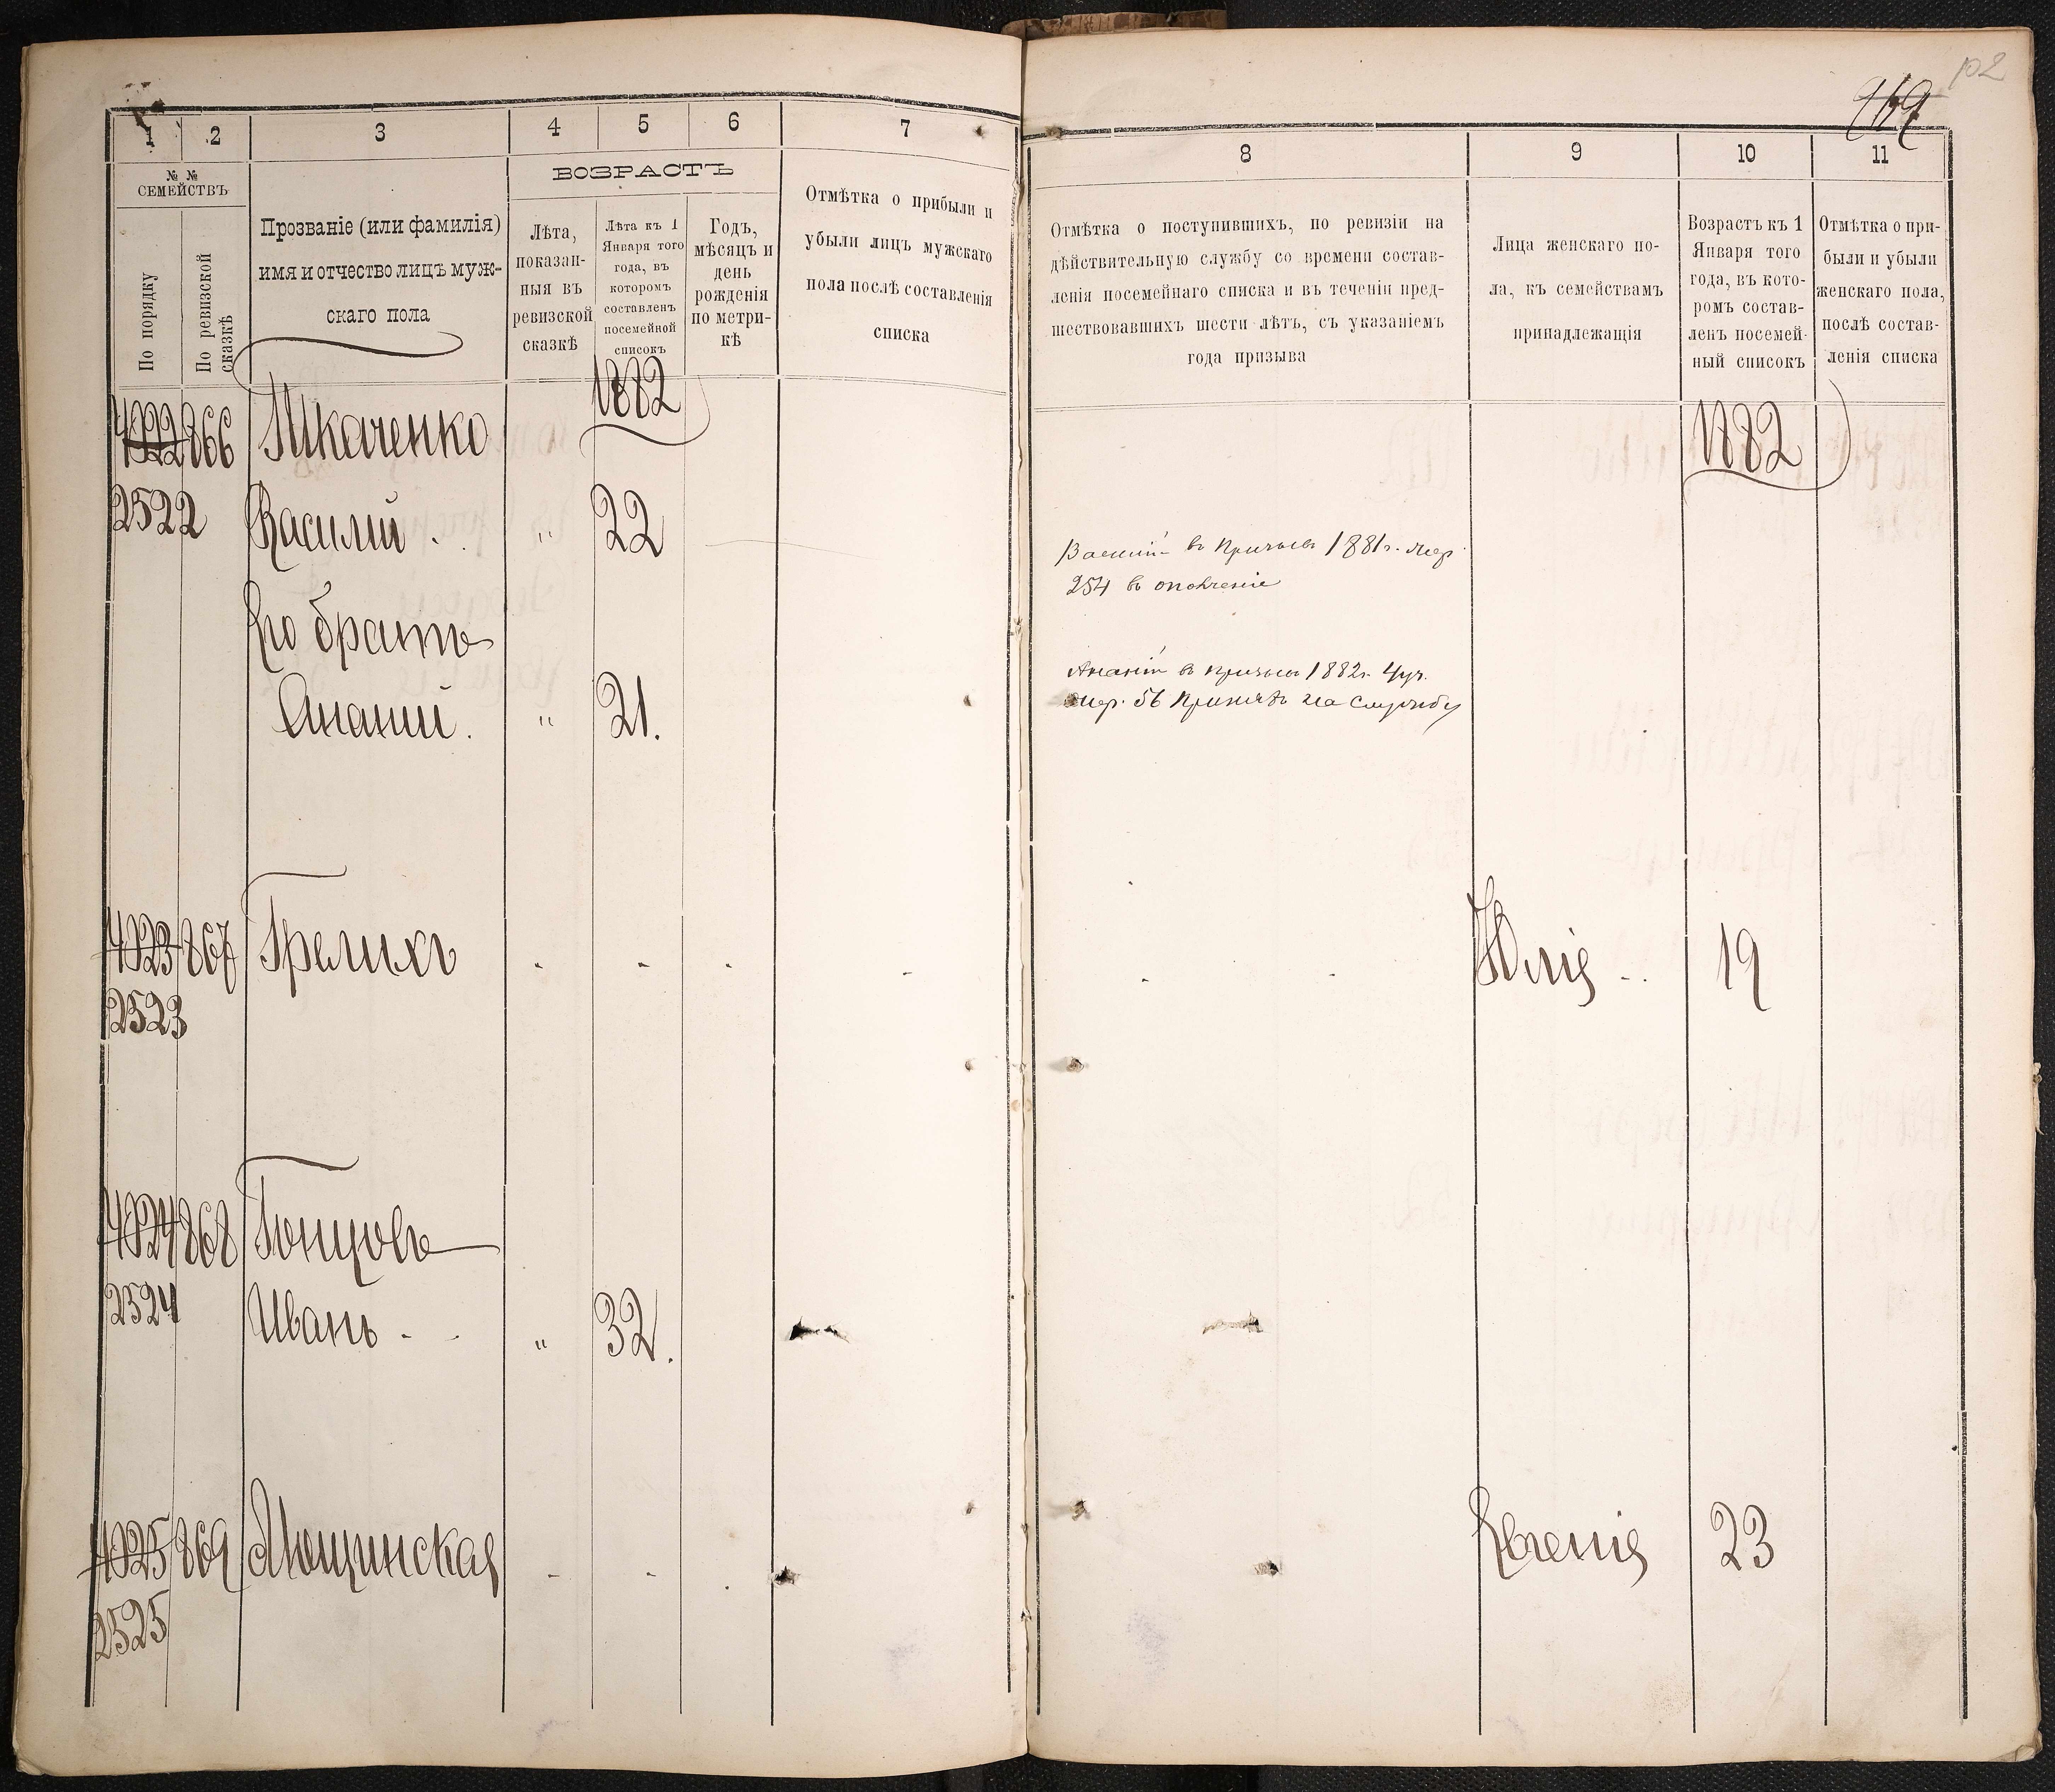 102
1
2
3
4
5
6
7
№ №
СЕМЕЙСТВЪ
По порядку
По ревизской
сказкѣ
Прозваніе (или фамилія)
имя и отчество лицъ муж-
скаго пола
ВОЗРАСТЪ
Лѣта,
показан-
ныя въ
ревизской
сказкѣ
Лѣта къ 1
Января того
года, въ
которомъ
составленъ
посемейной
списокъ
Годъ,
мѣсяцъ и
день
рожденія
по метри-
кѣ
Отмѣтка о прибыли и
убыли лицъ мужскаго
пола послѣ составленія
списка
8
9
10
11
Отмѣтка о поступившихъ, по ревизіи на
дѣйствительную службу со времени состав-
ленія посемейнаго списка и въ теченіи пред-
шествовавшихъ шести лѣтъ, съ указаніемъ
года призыва
Лица женскаго по-
ла, къ семействамъ
принадлежащія
Возрастъ къ 1
Января того
года, въ кото-
ромъ состав-
ленъ посемей-
ный списокъ
Отмѣтка о при-
были и убыли
женскаго пола,
послѣ состав-
ленія списка
1882
1882
4022 866 Ткаченко
2522 Василій " 22
Василій въ Призывъ 1881 г. жер.
254 въ ополченіе
Его братъ
Ананій. " 21.
Ананій въ призывъ 1882 г. 4 уч.
жер. 56 Принятъ на службу
4023 867 Грелихъ Юлія 19
2523
4024 868 Гонцовъ
2524 Иванъ " 32.
4025 869 Мощинская Евгенія 23
2525